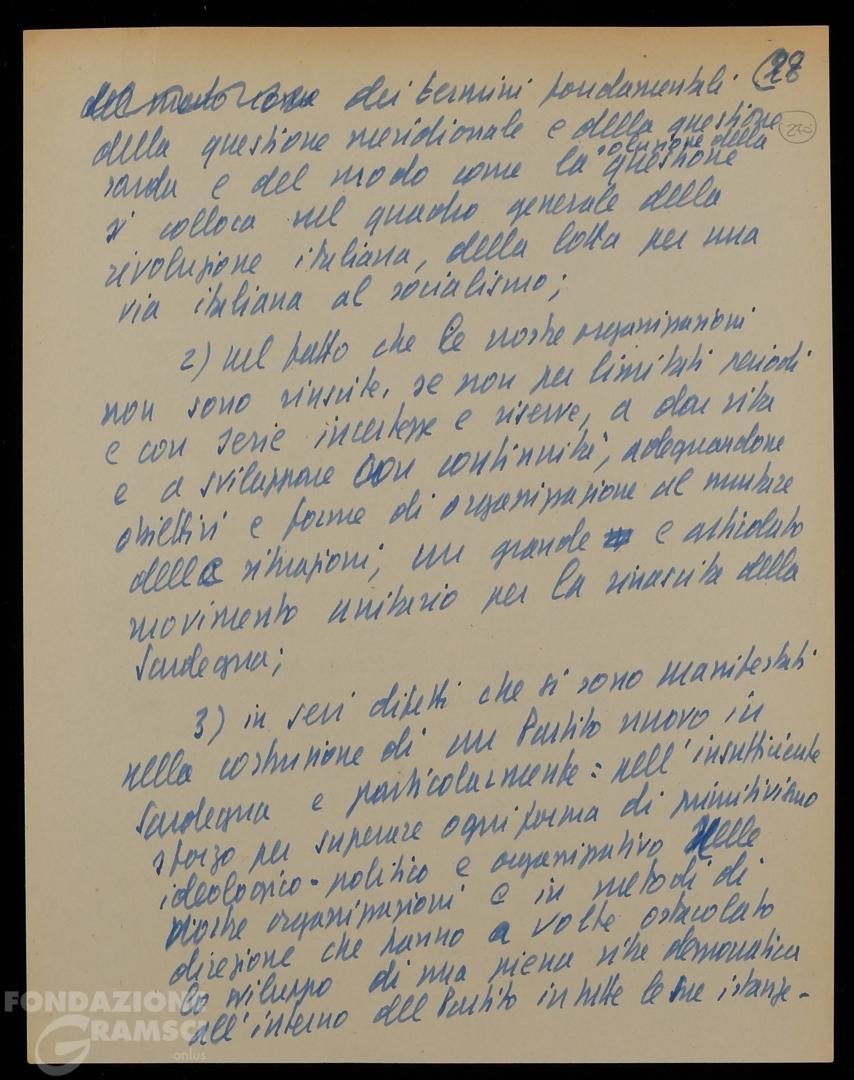 28
270
del modo come dei termini fondamentali
della questione meridionale e della questione
sarda e del modo come la soluzione della questione
si colloca nel quadro generale della
rivoluzione italiana, della lotta per una
via italiana al socialismo;
2) nel fatto che le nostre organizzazioni
non sono riuscite, se non per limitati periodi
e con serie incertezze e riserve, a dar vita
e a sviluppare con continuità, adeguandone
obiettivi e forme di organizzazione al mutare
delle situazioni, un grande e articolato
movimento unitario per la rinascita della
Sardegna;
3) in seri difetti che si sono manifestati
nella costruzione di un Partito nuovo in
Sardegna e particolarmente: nell'insufficiente
sforzo per superare ogni forma di primitivismo
ideologico-politico e organizzativo nelle
nostre organizzazioni e in metodi di
direzione che hanno a volte ostacolato
lo sviluppo di una piena vita democratica
all'interno del Partito in tutte le sue istanze-
FONDAZIONE
GRAMSCI
onlus